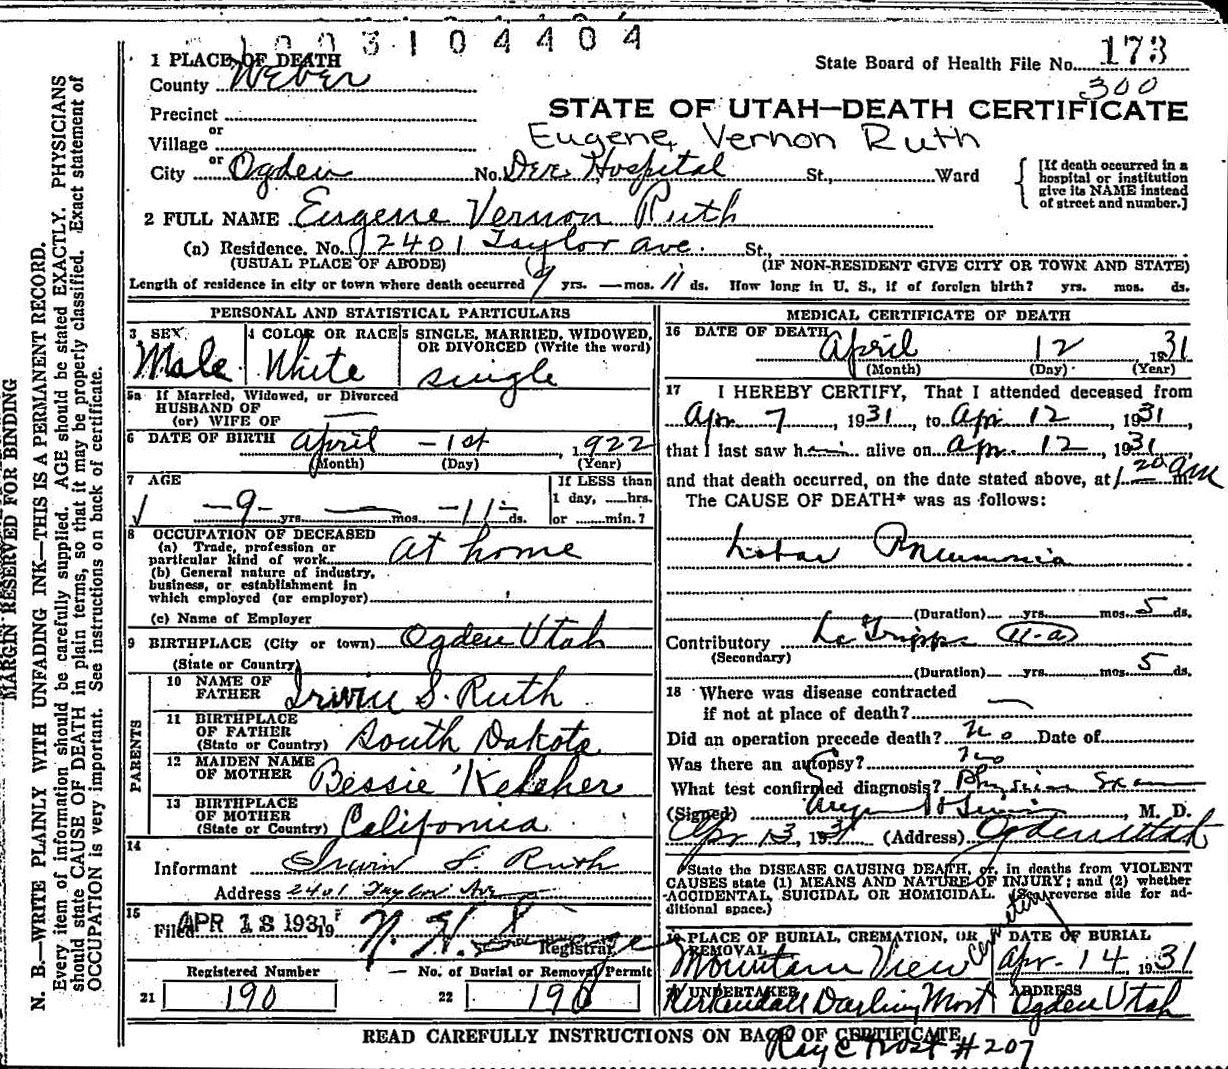 1003104404
1 PLACE OF DEATH
County Weber
State Board of Health File No. 173
300
Precinct
STATE OF UTAH—DEATH CERTIFICATE
or
Village
Eugene Vernon Ruth
or
City Ogden No. Dee Hospital St., Ward
[If death occurred in a hospital or institution give its NAME instead of street and number.]
2 FULL NAME Eugene Vernon Ruth
(a) Residence. No. 2401 Taylor Ave. St.,
(USUAL PLACE OF ABODE) (IF NON-RESIDENT GIVE CITY OR TOWN AND STATE)
Length of residence in city or town where death occurred 9 yrs. — mos. 11 ds. How long in U. S., if of foreign birth? yrs. mos. ds.
PERSONAL AND STATISTICAL PARTICULARS
3 SEX
Male
4 COLOR OR RACE
White
5 SINGLE, MARRIED, WIDOWED,
OR DIVORCED (Write the word)
single
5a If Married, Widowed, or Divorced
HUSBAND OF
(or) WIFE OF —
6 DATE OF BIRTH April - 1st 1922
(Month) (Day) (Year)
7 AGE
- 9 - yrs. — mos. - 11 - ds.
If LESS than
1 day, ......hrs.
or ......min.?
8 OCCUPATION OF DECEASED
(a) Trade, profession or
particular kind of work At home
(b) General nature of industry,
business, or establishment in
which employed (or employer)
(c) Name of Employer
9 BIRTHPLACE (City or town) Ogden Utah
(State or Country)
PARENTS
10 NAME OF
FATHER Irwin S. Ruth
11 BIRTHPLACE
OF FATHER
(State or Country) South Dakota
12 MAIDEN NAME
OF MOTHER Bessie Kelcher
13 BIRTHPLACE
OF MOTHER
(State or Country) California
14
Informant Irwin S. Ruth
Address 2401 Taylor Ave
15
Filed APR 13 1931 19 N. H.
Registrar
Registered Number
21 190
No. of Burial or Removal Permit
22 190
MEDICAL CERTIFICATE OF DEATH
16 DATE OF DEATH
April 12, 1931
(Month) (Day) (Year)
17 I HEREBY CERTIFY, That I attended deceased from
Apr 7, 1931, to Apr 12, 1931,
that I last saw him alive on Apr. 12, 1931,
and that death occurred, on the date stated above, at 1 20 am m.
The CAUSE OF DEATH* was as follows:
Lobar Pneumonia
(Duration) yrs. mos. 5 ds.
Contributory La Grippe 11-a
(Secondary)
(Duration) yrs. mos. 5 ds.
18 Where was disease contracted
if not at place of death? —
Did an operation precede death? no Date of
Was there an autopsy? no
What test confirmed diagnosis? Physician Exam
(Signed) M. D.
Apr 13, 1931 (Address) Ogden Utah
*State the DISEASE CAUSING DEATH, or, in deaths from VIOLENT
CAUSES state (1) MEANS AND NATURE OF INJURY; and (2) whether
ACCIDENTAL, SUICIDAL OR HOMICIDAL. (See reverse side for ad-
ditional space.)
19 PLACE OF BURIAL, CREMATION, OR
REMOVAL
Mountain View Cemetery
DATE OF BURIAL
Apr. 14 1931
20 UNDERTAKER
Kirkendall Darling Mort
ADDRESS
Ogden Utah
READ CAREFULLY INSTRUCTIONS ON BACK OF CERTIFICATE
Ray C Trost #207
MARGIN RESERVED FOR BINDING
N. B.—WRITE PLAINLY WITH UNFADING INK—THIS IS A PERMANENT RECORD.
Every item of information should be carefully supplied. AGE should be stated EXACTLY. PHYSICIANS
should state CAUSE OF DEATH in plain terms, so that it may be properly classified. Exact statement of
OCCUPATION is very important. See instructions on back of certificate.